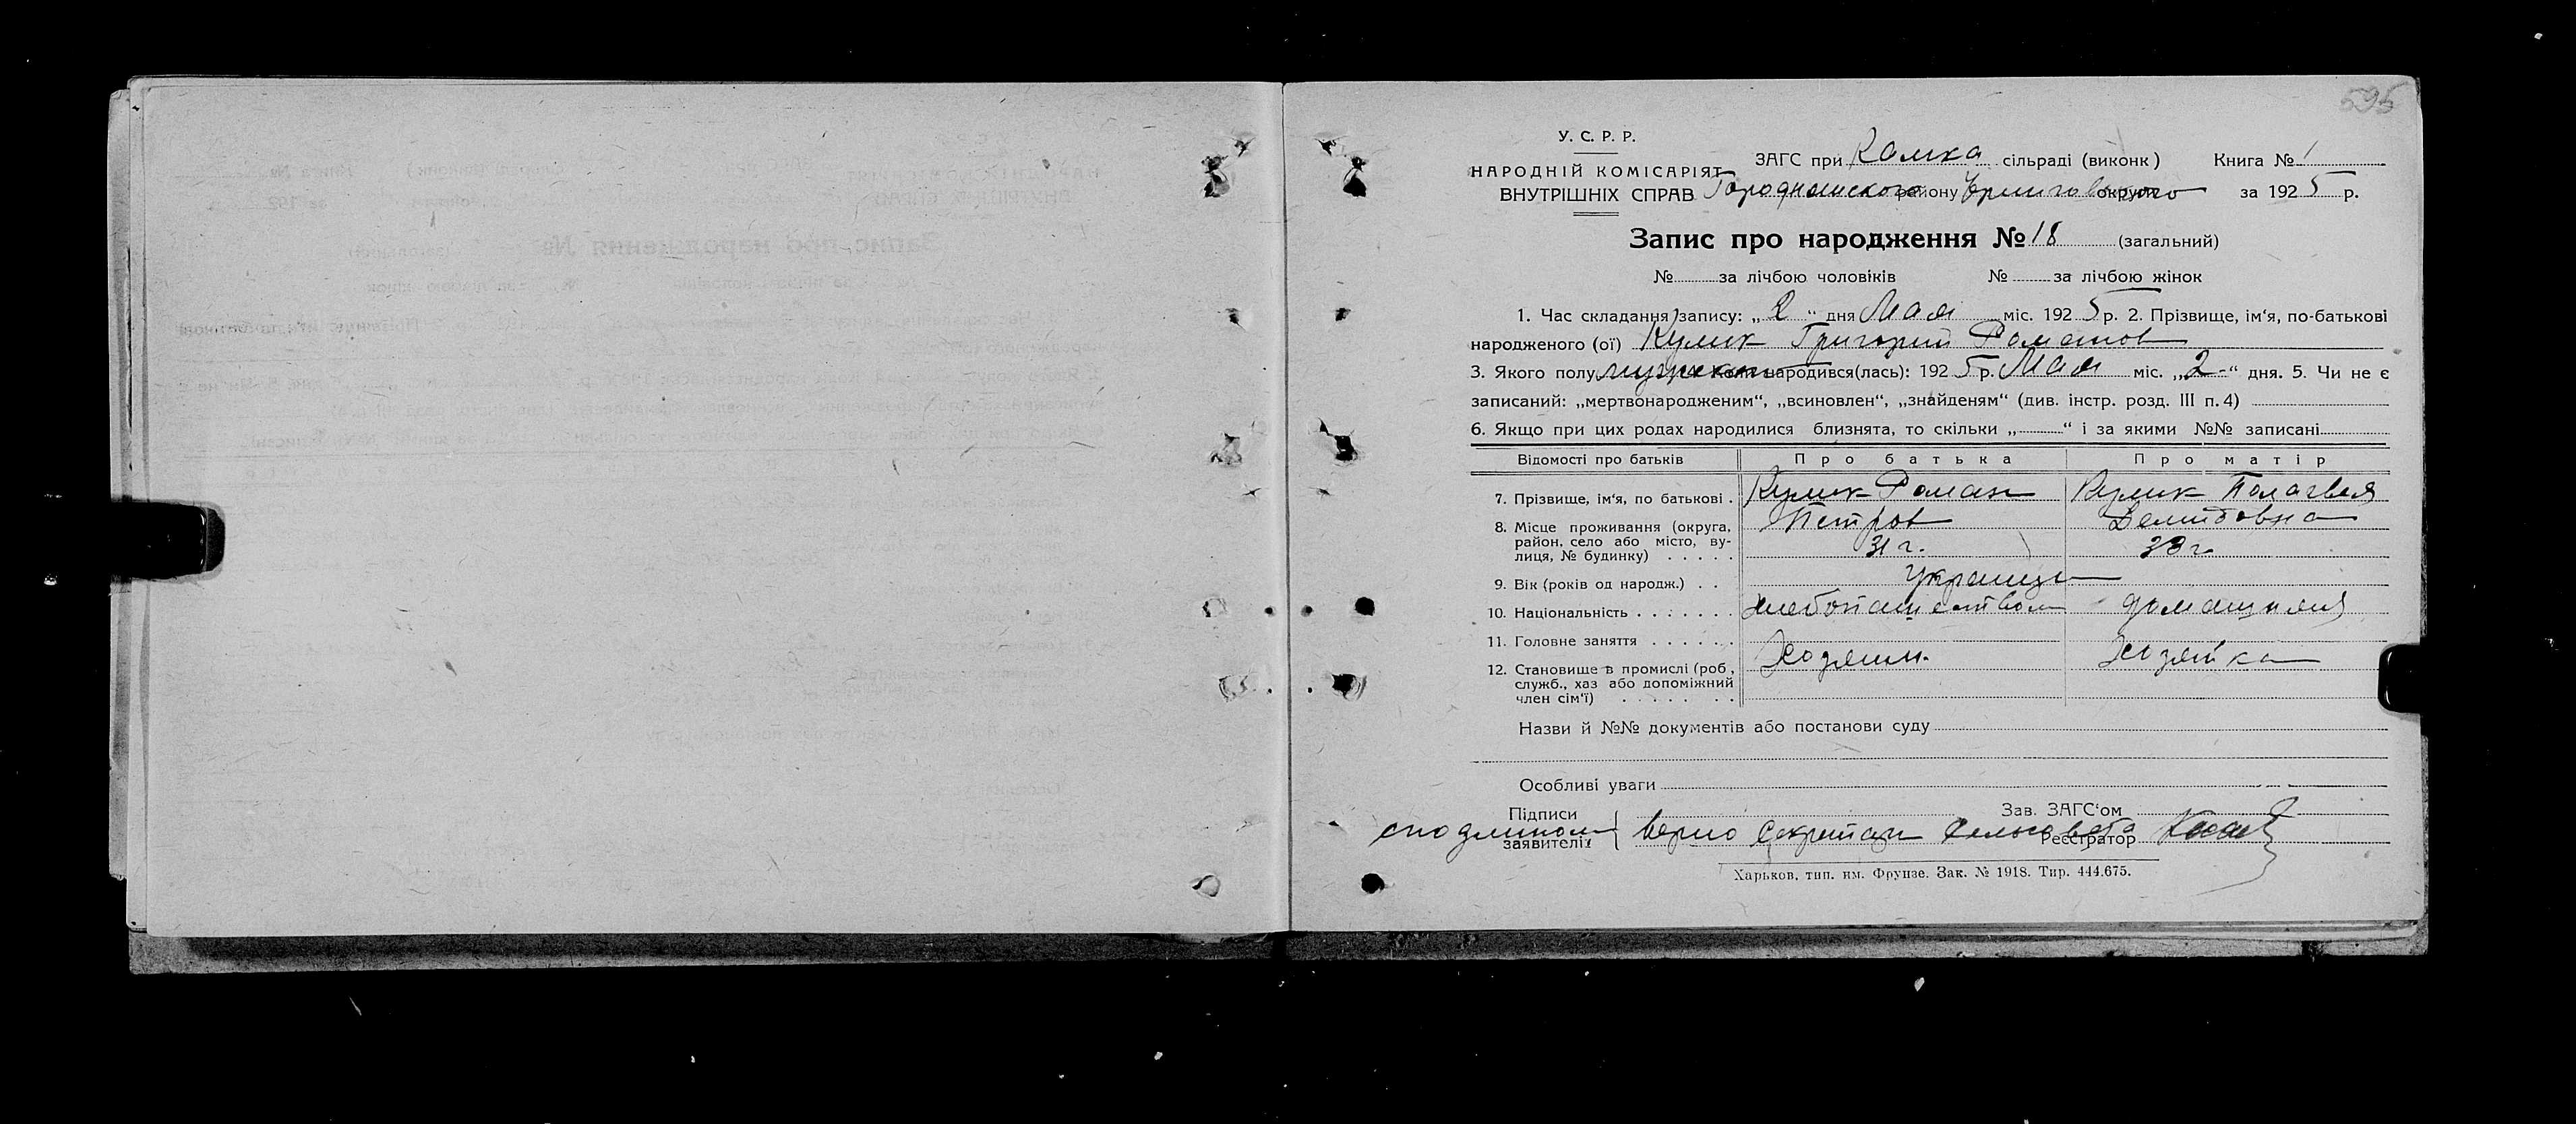 595
У. С. Р. Р.
НАРОДНІЙ КОМІСАРІЯТ
ВНУТРІШНІХ СПРАВ
ЗАГС при Камка сільраді (виконк) Книга № 1
району округи за 1925 р.
Запис про народження № 18 (загальний)
№ за лічбою чоловіків № за лічбою жінок
1. Час складання запису: „2“ дня Мая міс. 1925 р. 2. Прізвище, ім‘я, по-батькові
народженого (ої) Кулик Григорий Романов
3. Якого полу народився(лась): 1925 р. Мая міс. „2“ дня. 5. Чи не є
записаний: „мертвонародженим“, „всиновлен“, „знайденям“ (див. інстр. розд. III п. 4)
6. Якщо при цих родах народилися близнята, то скільки „ “ і за якими №№ записані
Відомості про батьків Про батька Про матір
7. Прізвище, ім‘я, по батькові . Кулик Роман Кулик
8. Місце проживання (округа, Петров Демидовна
район, село або місто, ву-
лиця, № будинку) . . . . . 31 г. г.
9. Вік (років од народж.) . . Украинцы
10. Національність . . . . . . . хлебопашеством
11. Головне заняття . . . . . .
12. Становище в промислі (роб., Хозяин. Хозяйка
служб., хаз або допоміжний
член сім‘ї) . . . . . . .
Назви й №№ документів або постанови суду
Особливі уваги
Підписи Зав. ЗАГС‘ом
верно Секретарь Сельсовета
заявителів Реєстратор
Харьков, тип. им. Фрунзе. Зак. № 1918. Тир. 444.675.